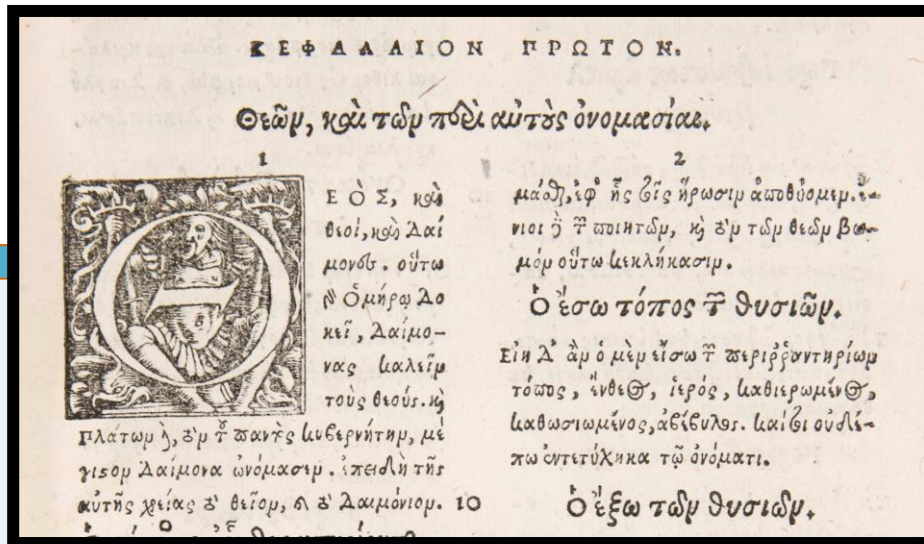 ΚΕΦΑΛΑΙΟΝ ΠΡΩΤΟΝ.
Θεῶν, καὶ τῶν περὶ αὐτοὺς ὀνομασίαι.
1
ΘΕΟ͂Σ, καὶ
θεοὶ, καὶ δαί
μονες. οὕτω
δ' Ὁμήρῳ δο
κεῖ, δαίμο-
νας καλεῖν
τοὺς θεούς. καὶ
Πλάτων δὲ, τὸν τοῦ παντὸς κυβερνήτην, μέ
γιστον δαίμονα ὠνόμασεν. ἐπειδὴ τῆς
αὐτῆς χρείας τὸ θεῖον, καὶ τὸ δαιμόνιον. 10
2
ἐφ' ἧς τοῖς ἥρωσιν ἀποθύομεν. ἔ-
νιοι δὲ τῶν ποιητῶν, καὶ τὸν τῶν θεῶν βω-
μὸν οὕτω κεκλήκασιν.
Ὁ ἔσω τόπος τῶν θυσιῶν.
Εἴη δ' ἂν ὁ μὲν εἴσω τῶν περιῤῥαντηρίων
τόπος, ἔνθεος, ἱερὸς, καθιερωμένος,
καθωσιωμένος, ἀβέβηλος. καίτοι οὐδέ-
πω ἐντετύχηκα τῷ ὀνόματι.
Ὁ ἔξω τῶν θυσιῶν.